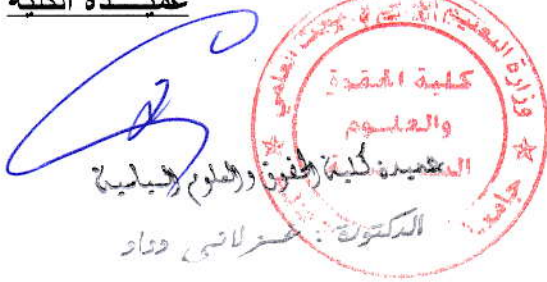 عميـــدة الكلية
وزارة التعليم العالي و البحث العلمي
كلية الحقوق
والعلـــوم
عميدة كلية الحقوق والعلوم السياسية
الدكتورة : غـزلاني وداد